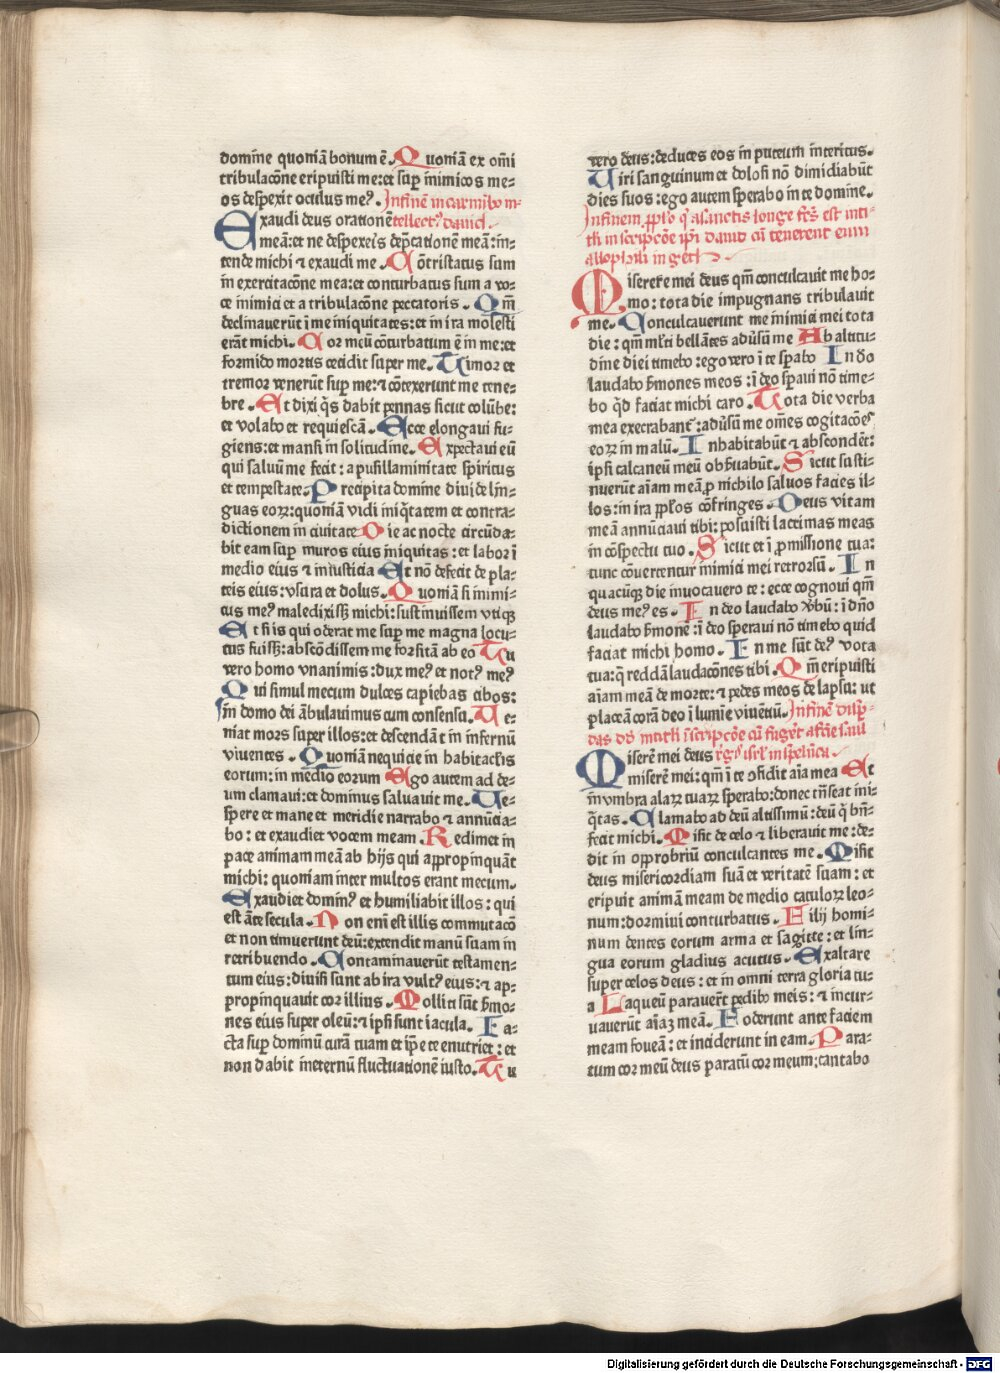 domine quoniā bonum ē. Quoniā ex om̄i
tribulacōne eripuisti me: et sup̄ inimicos me⸗
os despexit oculus me⁹. Infinē in carmībꝫ in⸗
Exaudi deus orationē tellect⁹ dauid
meā: et ne despexeris dep̄cationē meā: in⸗
tende michi ⁊ exaudi me. Cōtristatus sum
in exercitacōne mea: et conturbatus sum a vo⸗
ce inimici et a tribulacōne peccatoris. Qm̄
declinauerūt ī me iniquitates: et in ira molesti
erāt michi. Cor meū cōturbatum ē in me: et
formido mortis cecidit super me. Timor et
tremor venerūt sup me: ⁊ cōtexerunt me tene⸗
bre. Et dixi q̇s dabit pennas sicut colūbe:
et volabo et requiescā. Ecce elongaui fu⸗
giens: et mansi in solitudine. Expectaui eū
qui saluū me fecit: a pusillaminitate spiritus
et tempestate. Precipita domine diuide lin⸗
guas eoꝝ: quoniā vidi iniq̇tatem et contra⸗
dictionem in ciuitate Die ac nocte circūda⸗
bit eam sup̄ muros eius iniquitas: et labor ī
medio eius ⁊ iniusticia Et nō defecit de pla⸗
teis eius: vsura et dolus. Quoniā si inimi⸗
cus me⁹ maledixisꝫ michi: sustinuissem vtiqꝫ
Et si is qui oderat me sup̄ me magna locu⸗
tus fuisꝫ: abscōdissem me forsitā ab eo Tu
vero homo vnanimis: dux me⁹ et not⁹ me⁹
Qui simul mecum dulces capiebas cibos:
in domo dei ābulauimus cum consensu. Ve⸗
niat mors super illos: et descendāt in infernū
viuentes. Quoniā nequicie in habitaclis
eorum: in medio eorum Ego autem ad de⸗
um clamaui: et dominus saluauit me. Ve⸗
spere et mane et meridie narrabo ⁊ annūcia⸗
bo: et exaudiet vocem meam. Redimet in
pace animam meā ab hijs qui appropinquāt
michi: quoniam inter multos erant mecum.
Exaudiet domin⁹ et humiliabit illos: qui
est āte secula. Non enī est illis commutacō
et non timuerunt deū: extendit manū suam in
retribuendo. Contaminauerūt testamen⸗
tum eius: diuisi sunt ab ira vult⁹ eius: ⁊ ap⸗
propinquauit cor illius. Molliti sūt s̄mo⸗
nes eius super oleū: ⁊ ipsi sunt iacula. Ia⸗
cta sup̄ dominū curā tuam et ip̄e te enutriet: et
non dabit ineternū fluctuationē iusto. Tu
vero deus: deduces eos in puteum interitus.
Viri sanguinum et dolosi nō dimidiabūt
dies suos: ego autem sperabo in te domine.
Infinem p̱plo q̇ a sanctis longe fc̄s est inti⸗
tli inscripcōe ip̄i dauid cū tenerent eum
allophili in geth
Miserere mei deus qm̄ conculcauit me ho⸗
mo: tota die impugnans tribulauit
me. Conculcauerunt me inimici mei tota
die: qm̄ ml̄ti bellātes aduˢsū me Ab altitu⸗
dine diei timebo: ego vero ī te sp̱abo In deo
laudabo s̄mones meos: ī deo sp̱aui nō time⸗
bo q̇d faciat michi caro. Tota die verba
mea execrabant²: aduˢsū me om̄es cogitacōes
eoꝝ in malū. Inhabitabūt ⁊ abscondēt:
ipsi calcaneū meū obs̄uabūt. Sicut susti⸗
nuerūt aīam meā ꝓ nichilo saluos facies il⸗
los: in ira pp̄los cōfringes. Deus vitam
meā annūciaui tibi: posuisti lacrimas meas
in cōspectu tuo. Sicut et ī ꝓmissione tua:
tunc cōuertentur inimici mei retrorsū. In
quacūqꝫ die inuocauero te: ecce cognoui qm̄
deus me⁹ es. In deo laudabo v̄bū: ī dn̄o
laudabo s̄mone: ī deo speraui nō timebo quid
faciat michi homo. In me sūt de⁹ vota
tua: q̄ reddā laudacōnes tibi. Qm̄ eripuisti
aīam meā de morte: ⁊ pedes meos de lapsu: ut
placeā corā deo ī lumīe viuētiū. Infinē disꝑ⸗
Miserē mei deus
miserē mei: qm̄ ī te cōfidit aīa mea Et
in vmbra alaꝝ tuaꝝ sperabo: donec trn̄seat ini⸗
q̇tas. Clamabo ad deū altissimū: deū q̇ bn̄⸗
fecit michi. Misit de celo ⁊ liberauit me: de⸗
dit in opprobriū conculcantes me. Misit
deus misericordiam suā et veritatē suam: et
eripuit animā meam de medio catuloꝝ leo⸗
num: dormiui conturbatus. Filij homi⸗
num dentes eorum arma et sagitte: et lin⸗
gua eorum gladius acutus. Exaltare
super celos deus: et in omni terra gloria tu⸗
a Laqueū parauer̄t pedibꝫ meis: ⁊ incur⸗
uauerūt aīaꝫ meā. Foderunt ante faciem
meam foueā: et inciderunt in eam. Para⸗
tum cor meū deus paratū cor meum: cantabo
Digitalisierung gefördert durch die Deutsche Forschungsgemeinschaft - DFG